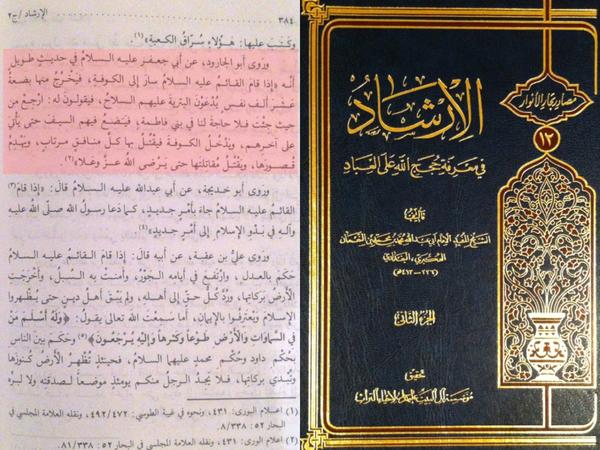 ٣٨٤
الإرشاد / ج٢
وكَتَبَ عليها: هؤلاءِ سُرّاقُ الكعبةِ»(١).
وروى أبو الجارود، عن أبي جعفرٍ عليه السلامُ في حديثٍ طويلٍ
أنّه «إذا قامَ القائمُ عليه السلامُ سارَ إلى الكوفةِ، فيَخرُجُ منها بضعةَ
عَشَرَ ألف نفسٍ يُدعَوْنَ البتريّةَ عليهم السلاحُ، فيقولونَ له: ارجِعْ من
حيثُ جِئْتَ فلا حاجةَ لنا في بني فاطمة، فيَضعُ فيهم السيفَ حتّى يأتيَ
على آخرِهم، ويَدخُلُ الكوفةَ فيَقتُلُ بها كلَّ منافقٍ مرتابٍ، ويَهدِمُ
قصورَها، ويَقتُلُ مُقاتِلَتَها حتّى يَرضى اللهُ عزَّ وعَلا»(٢).
وروى أبو خديجةَ، عن أبي عبداللهِ عليه السلامُ قالَ: «إذا قامَ(٣)
القائمُ عليه السلامُ جاءَ بأَمْرٍ جديدٍ، كما دعا رسولُ اللهِ صلّى اللهُ عليهِ
وآلهِ في بَدْوِ الإسلامِ إلى أَمْرٍ جديدٍ»(٤).
وروى عليُّ بن عقبةَ، عن أبيه قالَ: إذا قامَ القائمُ عليه السلامُ
حَكمَ بالعدلِ، وارتفعَ في أيّامِه الجَوْرُ، وأَمِنَتْ به السُبلُ، وأَخرجَتِ
الأرضُ بركاتِها، ورُدَّ كلُّ حقٍّ إلى أهلهِ، ولم يَبْقَ أهلُ دينٍ حتّى يُظهِروا
الإسلامَ ويَعترِفوا بالإيمانِ، أما سَمعْتَ اللهَ تعالى يقولُ: ﴿وَلَهُ أَسْلَمَ مَنْ
فِي السَّمَاوَاتِ وَالأَرْضِ طَوْعاً وَكَرْهاً وَإِلَيْهِ يُرْجَعُونَ﴾(٥) وحَكمَ بينَ الناسِ
بحُكمِ داودَ وحُكمِ محمّدٍ عليهما السلامُ، فحينئذٍ تُظهِرُ الأرضُ كنوزَها
وتُبدي بركاتِها، فلا يَجِدُ الرجلُ منكم يومئذٍ موضعاً لصدقتِه ولا لبرِّه
(١) إعلام الورى: ٤٣١، ونحوه في غيبة الطوسي: ٤٩٢/٤٧٢، ونقله العلامة المجلسي في
البحار ٥٢: ٨/٣٣٨.
(٢) إعلام الورى: ٤٣١، ونقله العلامة المجلسي في البحار ٥٢: ٨١/٣٣٨.
مصادر بحار الأنوار
١٢
الإرشاد
في معرفة حجج الله على العباد
تأليف
الشيخ المفيد الإمام أبي عبد الله محمد بن محمد بن النعمان
العكبري، البغدادي
(٣٣٦-٤١٣هـ)
الجزء الثاني
تحقيق
مؤسسة آل البيت عليهم السلام لإحياء التراث